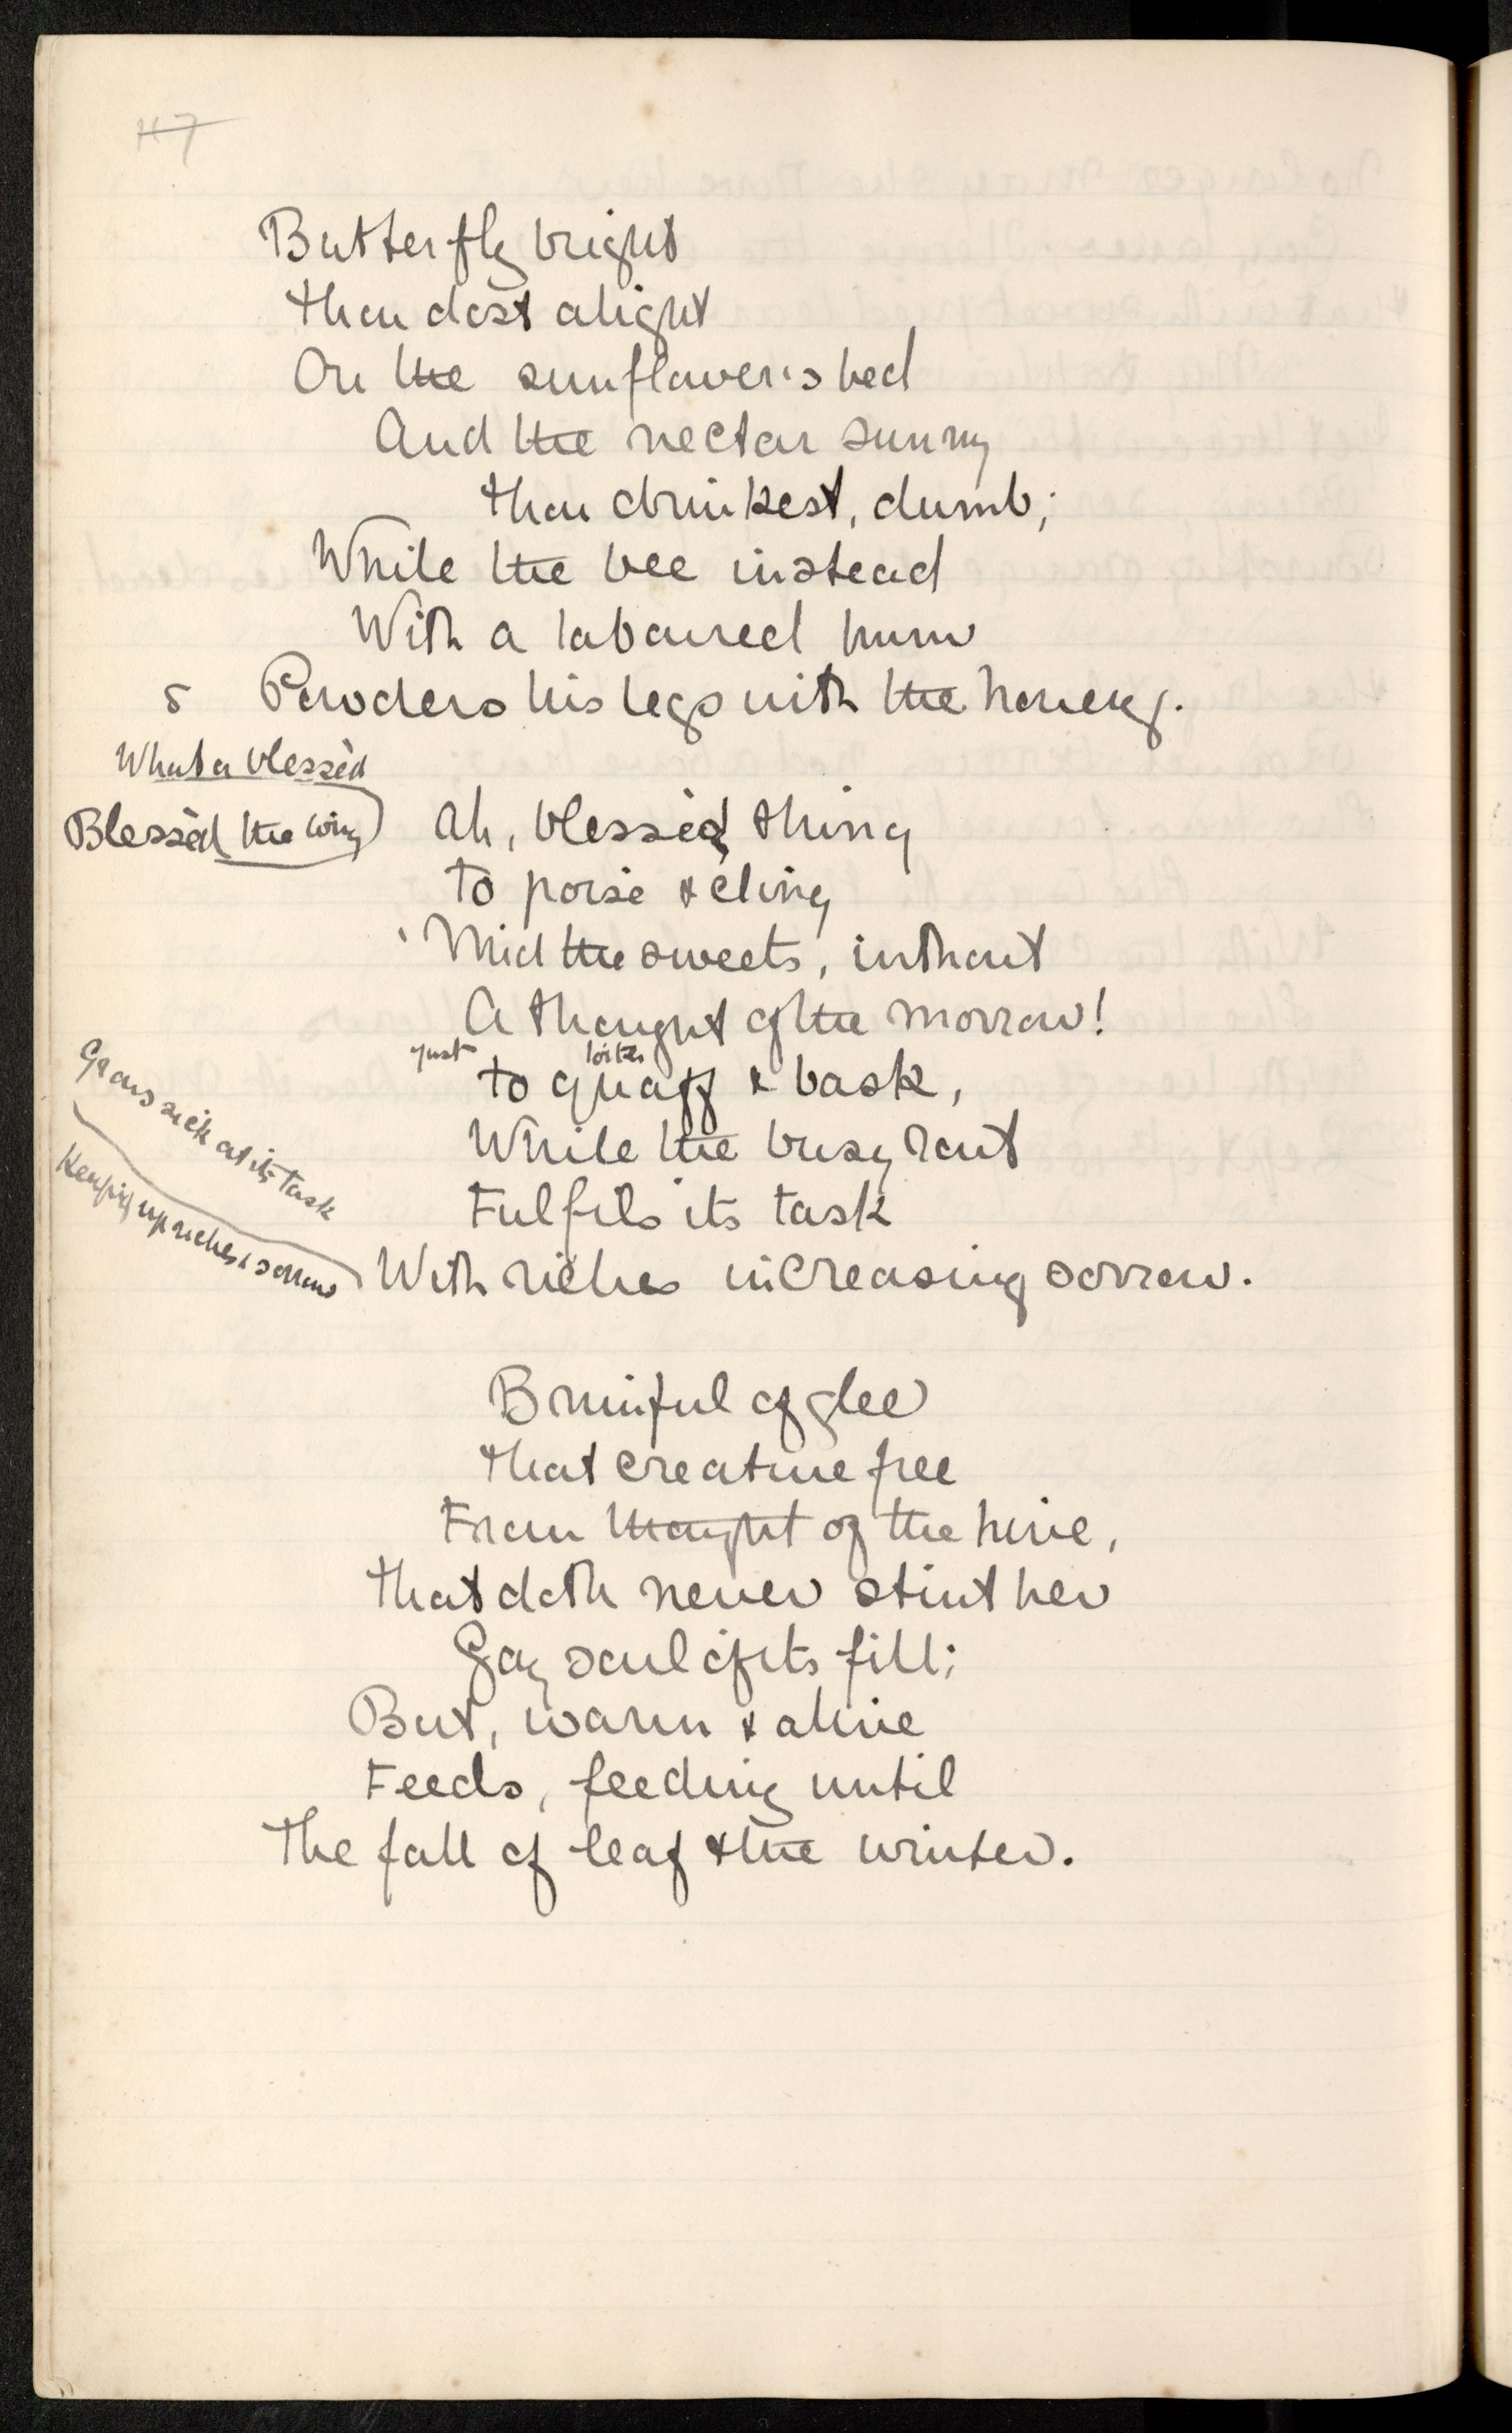 117
Butterfly bright
Thou dost alight
On the sunflower's bed
And the nectar sunny
Thou drinkest, dumb;
While the bee instead
With a laboured hum
Powders his legs with the honey.
What a blessèd
Blessèd the wing
Ah, blessèd thing
To poise & cling
'Mid the sweets, without
A thought of the morrow!
just loiter
To quaff & bask,
While the busy rout
Fulfils its task
Grows sick at its task
Heaping up riches & sorrow
With riches increasing sorrow.
Brimful of glee
That creature free
From thought of the hive,
That doth never stint her
Gay soul of its fill;
But, warm & alive
Feeds, feeding until
The fall of leaf & the winter.